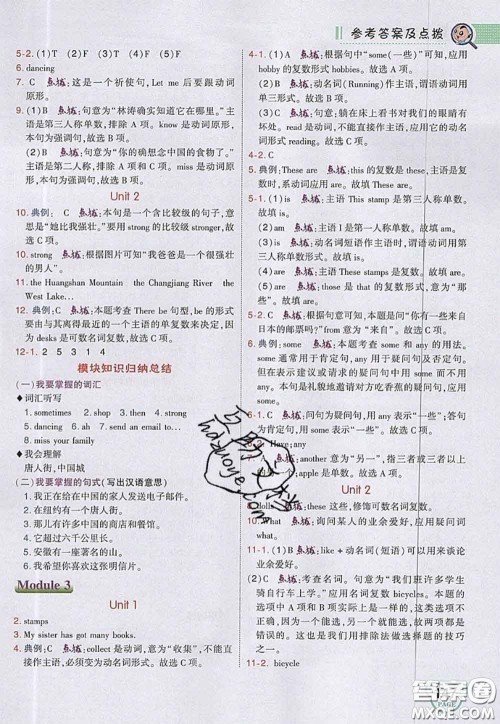 参考答案及点拨
5-2. (1)T (2)F (3)T (4)F (5)F
6. dancing
7. C 点拨：这是一个祈使句，Let me 后要跟动词
原形。
8. (1)B 点拨：句意为“林涛确实知道它在哪里。”主
语是第三人称单数，排除 A 项。know 是动词原
形，本句为强调句，故选 B 项。
(2)B 点拨：句意为“你的确想念中国的食物了。”
主语是第二人称，排除 A 和 C 项。miss 是动词原
形，本句为强调句，故选 B 项。
Unit 2
10. 典例：C 点拨：本句是一个含比较级的句子，意
思是“她比我强壮。”要用 strong 的比较级
stronger，故选 C 项。
10-1. strong 点拨：根据图片可知“我爸爸是一个很强壮
的男人”。
11. the Huangshan Mountain the Changjiang River the
West Lake...
12. 典例：C 点拨：本题考查 There be 句型，be 的形
式要与离它最近的一个主语的单复数来决定，因
为 desks 是可数名词复数，故选 C 项。
12-1. 2 5 3 1 4
模块知识归纳总结
(一)我要掌握的词汇
◆词汇听写
1. sometimes 2. shop 3. then 4. strong
5. dancing 6. ah 7. send an email to...
8. miss your family
◆我会理解
唐人街，中国城
(二)我要掌握的句式(写出汉语意思)
1. 我正在给在中国的家人发送电子邮件。
2. 在纽约有一个唐人街。
3. 那儿有许多中国的商店和餐馆。
4. 它超过六千公里长。
5. 安徽有一座著名的山。
6. 我希望你喜欢这张明信片。
Module 3
Unit 1
1. stamps
3. My sister has got many books.
4. 典例：C 点拨：collect 意为“收集”，不能直接
作主语，必须变为动名词形式，故选 C 项。
4-1. (1)C 点拨：根据句中“some(一些)”可知，应用
hobby 的复数形式 hobbies。故选 C 项。
(2)B 点拨：动名词(Running)作主语，谓语动词用
第三人称单数形式。故选 B 项。
(3)B 点拨：句意：躺在床上看书对我们的眼睛有
坏处。read 是动词，不能直接作主语，应用它的动名
词形式 reading。故选 B 项。
4-2. C
5. 典例：These are 点拨：This is 的复数是 These are，
时系动词应用 are，故填 These are。
(1)are 点拨：主语是 These，是复数，be 动词应用
are。故填 are。
(2)is 点拨：动名词短语作主语时，谓语动词用第
三人称单数形式。故填 is。
(3)are 点拨：These stamps 是复数，故填 are。
(4)are 点拨：those 是 that 的复数形式，be 动词
应用 are。故填 are。
7. 典例：B 点拨：根据句意可知，“你有一些来自
日本的邮票吗?”from 意为“来自”。故选 B 项。
8. 典例：A 点拨：本题考查 some 和 any 的用法。
some 通常用于肯定句，any 用于疑问句及否定句。
但在表示建议或请求的疑问句中往往要用 some。
本句是礼貌地邀请对方吃香蕉的疑问句，应用
some。故选 A 项。
点拨：问句为疑问句，用 any 表示“一些”；答
句为肯定句，用 some 表示“一些”。故选 C 项。
Have; any
点拨：another 意为“另一”，指三者或三者以上
的一个；apple 是单数。故选 C 项。
Unit 2
dolls 点拨：these 这些，修饰可数名词复数。
点拨：询问某人的业余爱好，应用疑问词
what。
11-1. (1)B 点拨：like + 动名词(短语)可以用来表示业
余爱好。
(2)C 点拨：考查名词。句意为“我们班许多学生
骑自行车上学。”应用名词复数 bicycles。本题的
选项中 A 项和 B 项虽然是复数，但是这两个选项
放在这里句意不通。而 D 项是名词单数，放在这
里也不正确，所以答案是 C 项。
这是我们常用的用排除法做选择题的技巧之
一。
11-2. bicycle
PAGE
答案圈
MXQE.COM